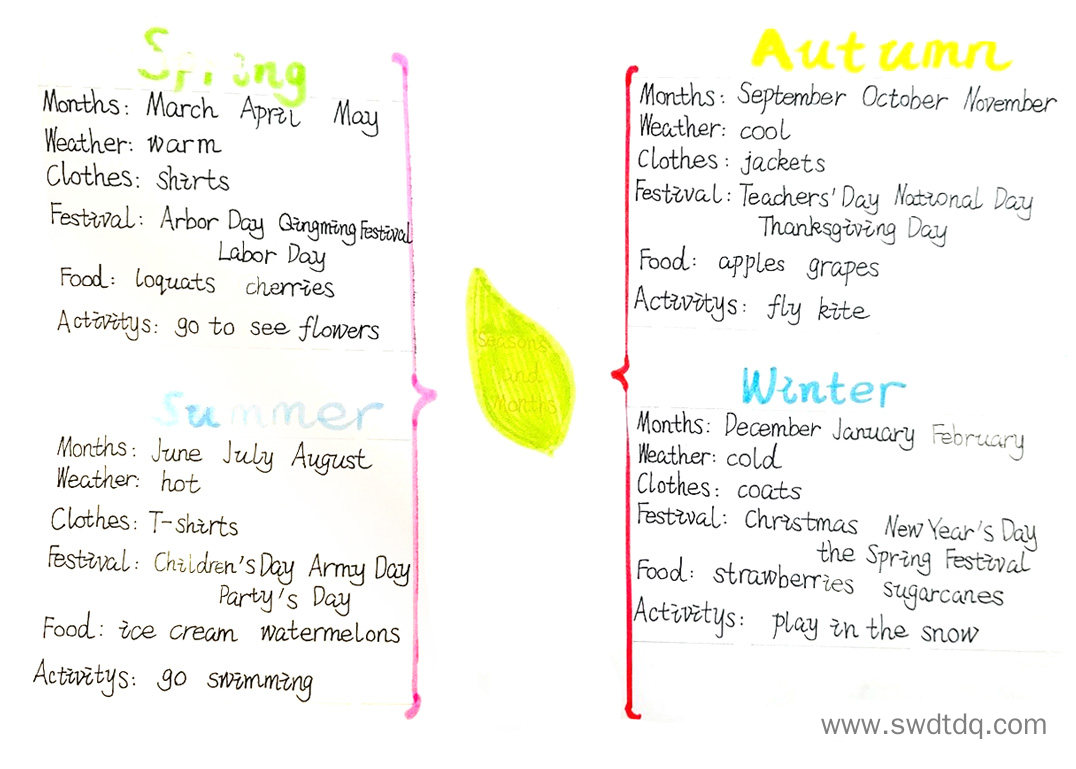 Spring
Months: March April May
Weather: warm
Clothes: shirts
Festival: Arbor Day Qingming Festival
Labor Day
Food: loquats cherries
Activitys: go to see flowers
Summer
Months: June July August
Weather: hot
Clothes: T-shirts
Festival: Children's Day Army Day
Party's Day
Food: ice cream watermelons
Activitys: go swimming
Seasons
and
Months
Autumn
Months: September October November
Weather: cool
Clothes: jackets
Festival: Teachers' Day National Day
Thanksgiving Day
Food: apples grapes
Activitys: fly kite
Winter
Months: December January February
Weather: cold
Clothes: coats
Festival: Christmas New Year's Day
the Spring Festival
Food: strawberries sugarcanes
Activitys: play in the snow
www.swdtdq.com